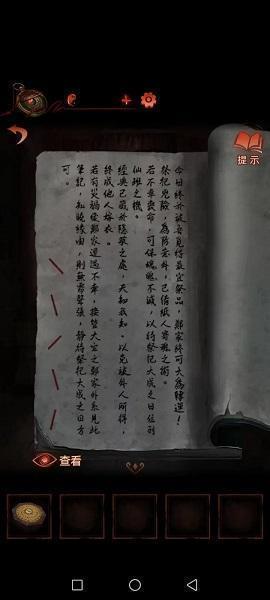 提示
今日終於被吾覓得最宜祭品，鄭家終可大為肆運！
祭祀兇險，為防意外，已備紙人寄靈之術。
若不幸喪命，可保魂魄不滅，以待祭祀大成之日位列
仙班之機。
經典已藏於隱蔽之處，天知我知。以免被外人所得，
終成他人嫁衣。
若有災禍使鄭家遭遇不幸，接替大宗之鄭家外系見此
筆記，知曉緣由，則無需聲張，靜待祭祀大成之日方
可。
查看